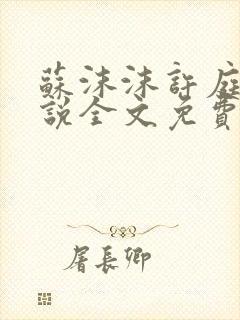 蘇沫沫許庭
說全文免費
屠長卿